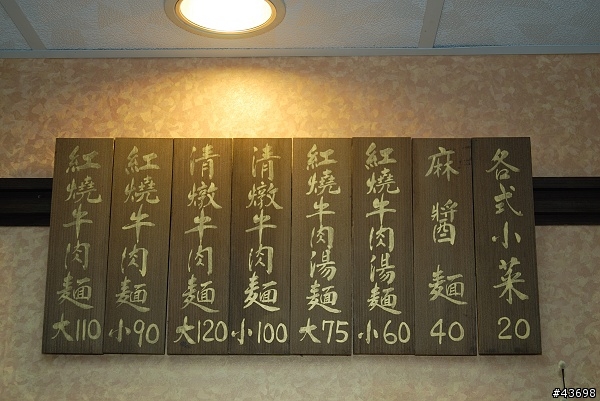 各式小菜 20
麻醬麵 40
紅燒牛肉湯麵 小60
紅燒牛肉湯麵 大75
清燉牛肉麵 小100
清燉牛肉麵 大120
紅燒牛肉麵 小90
紅燒牛肉麵 大110
#43698